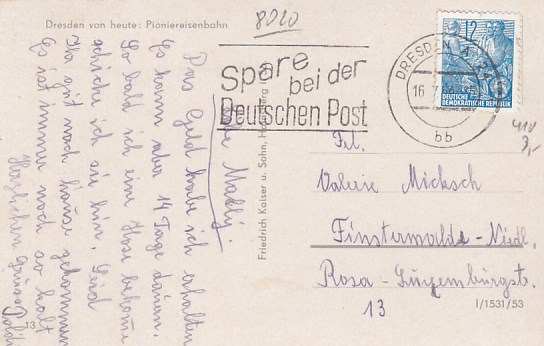 Dresden von heute: Pioniereisenbahn
8020
Spare
bei der
Deutschen Post
DRESDEN
16.7.
bb
12
DEUTSCHE
DEMOKRATISCHE REPUBLIK
Das Geld habe ich erhalten
Es kann aber 14 Tage dauern.
So bald ich eine Hose bekomme
schicke ich sie hin. Sind
gut nach hause gekommen
Es ist immer noch so kalt
Herzlichen Gruss
Friedrich Kaiser u. Sohn,
Frl.
Valerie Micksch
Finsterwalde-Niedl.
Rosa-Luxemburgstr.
13
I/1531/53
13
3,-